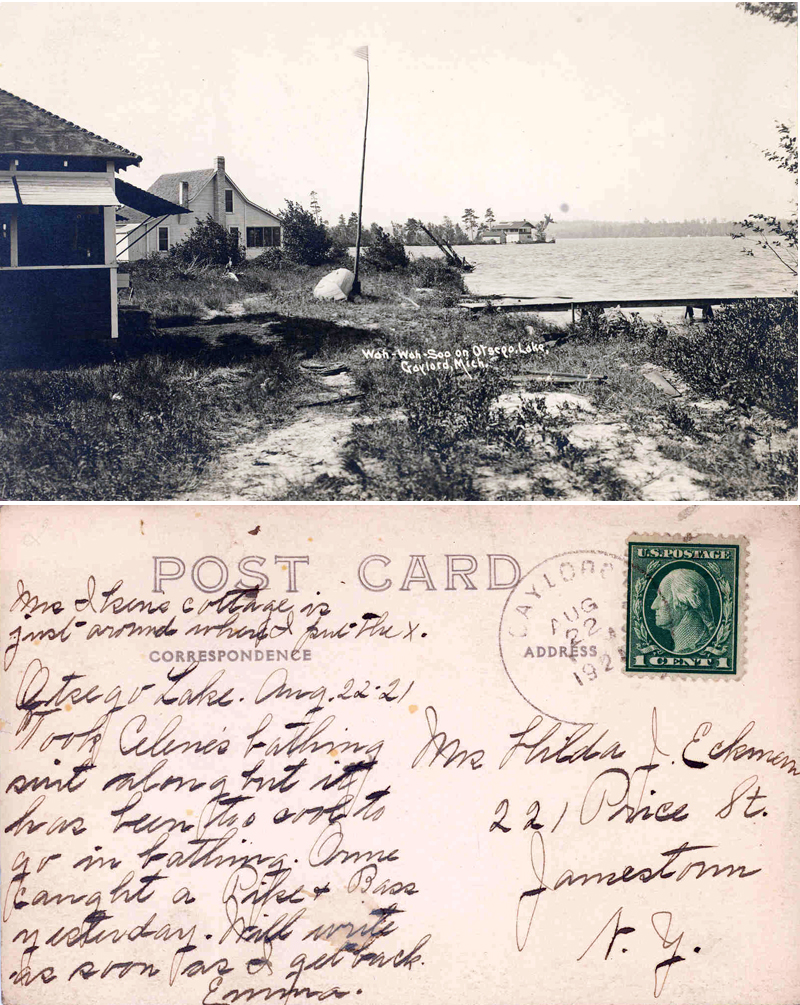 Wah-Wah-Soo on Otsego Lake,
Gaylord, Mich.
POST CARD
Mrs Ikens cottage is
just around where I put the x.
CORRESPONDENCE
Otsego Lake. Aug. 22-21
Took Celene's bathing
suit along but it
has been too cool to
go in bathing. Orme
caught a Pike + Bass
yesterday. Will write
as soon as I get back.
Emma.
GAYLORD
AUG
22
192
ADDRESS
U.S. POSTAGE
1 CENT 1
Mrs Hilda J. Eckman
221 Price St.
Jamestown
N. Y.